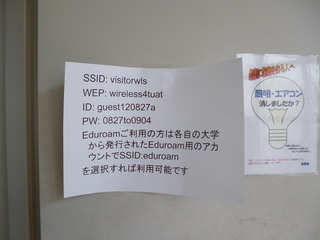 SSID: visitorwls
WEP: wireless4tuat
ID: guest120827a
PW: 0827to0904
Eduroamご利用の方は各自の大学
から発行されたEduroam用のアカ
ウントでSSID:eduroam
を選択すれば利用可能です
照明・エアコン
消しましたか？